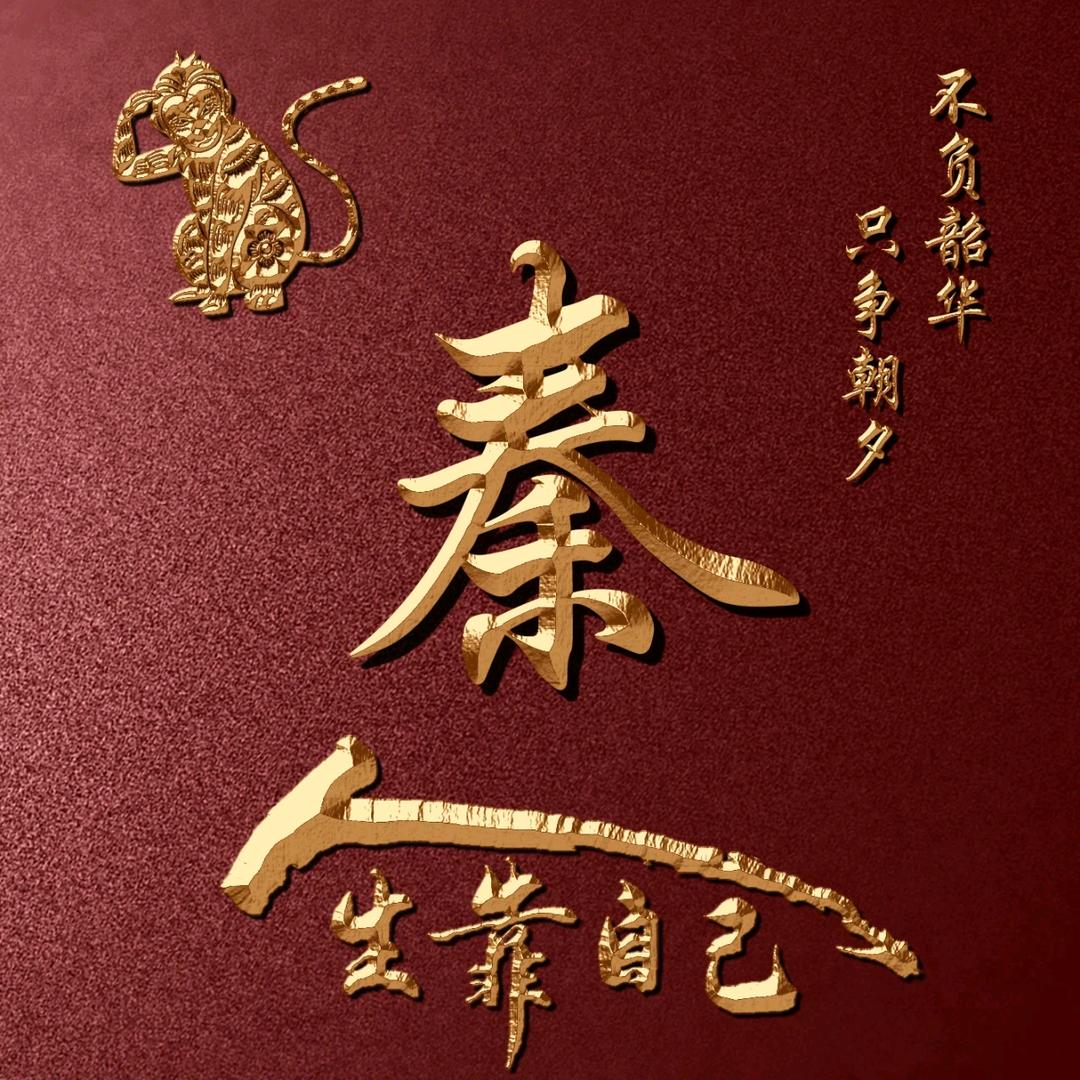 不负韶华
只争朝夕
秦
人生靠自己